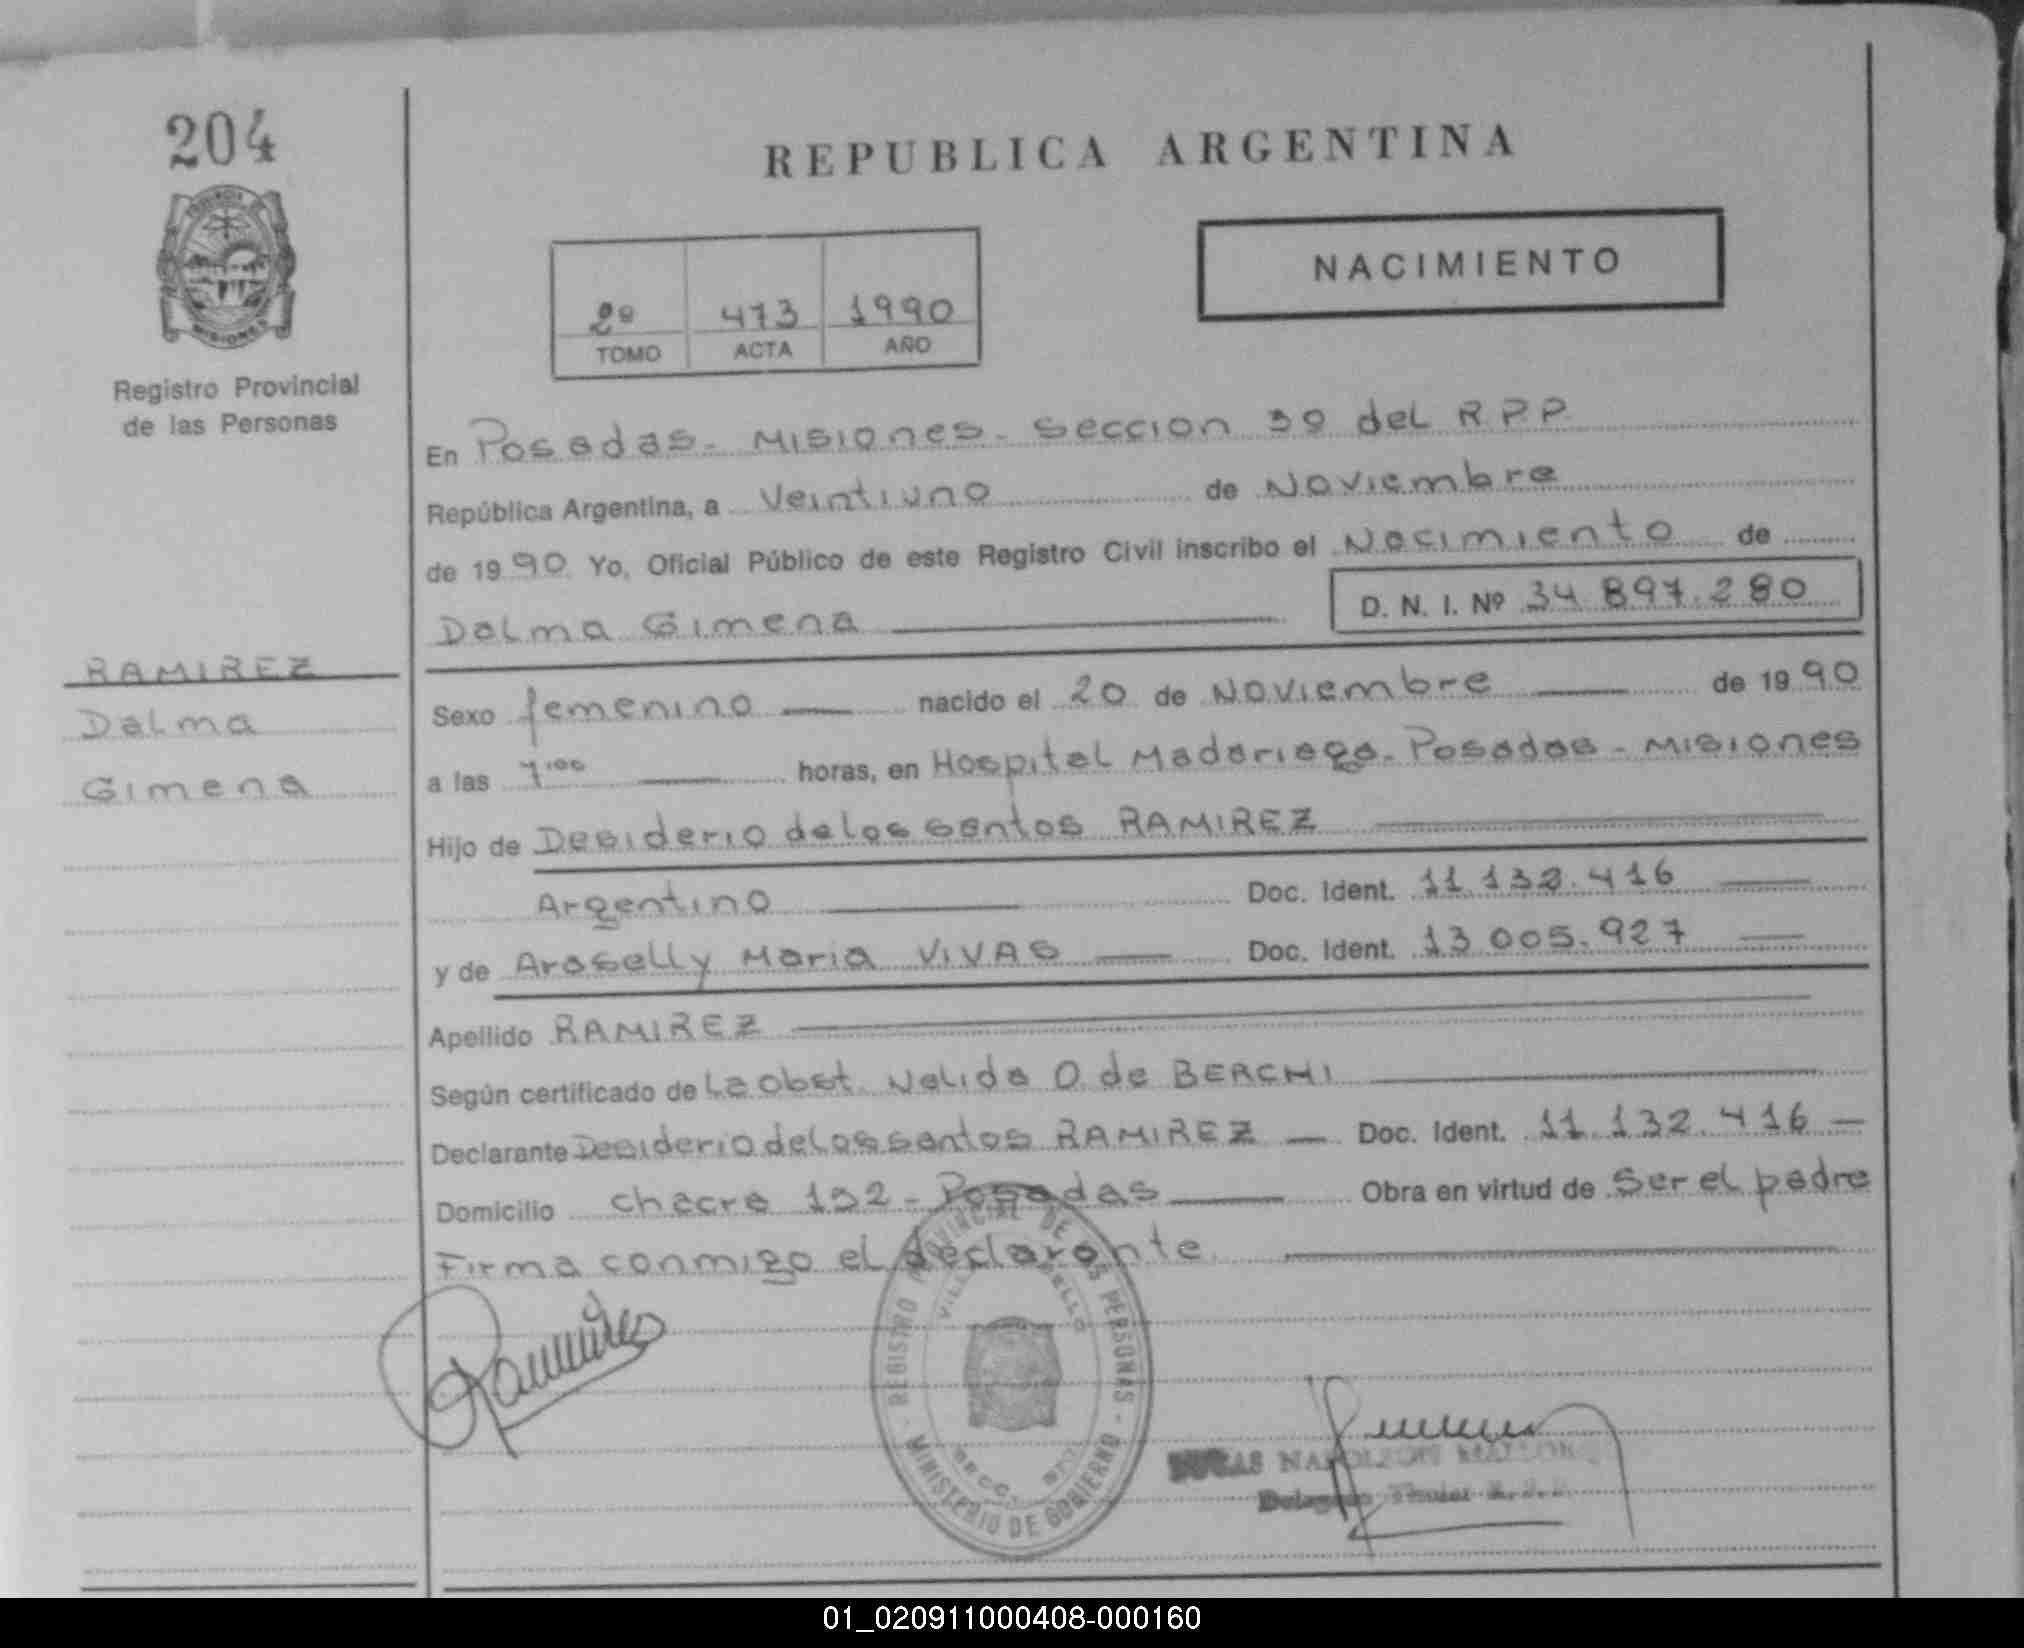 204
REPUBLICA ARGENTINA
NACIMIENTO
2º 473 1990
TOMO ACTA AÑO
MISIONES
Registro Provincial
de las Personas
En Posadas - Misiones - Seccion 3º del R.P.P.
República Argentina, a Veintiuno de Noviembre
de 1990 Yo, Oficial Público de este Registro Civil inscribo el Nacimiento de
Dalma Gimena D. N. I. Nº 34.897.280
RAMIREZ
Dalma
Gimena
Sexo femenino nacido el 20 de Noviembre de 1990
a las 7'00 horas, en Hospital Madariaga - Posadas - Misiones
Hijo de Desiderio de los santos RAMIREZ
Argentino Doc. Ident. 11.132.416
y de Araselly Maria VIVAS Doc. Ident. 13.005.927
Apellido RAMIREZ
Según certificado de La obst. Nelida O. de BERCHI
Declarante Desiderio de los santos RAMIREZ Doc. Ident. 11.132.416
Domicilio chacra 192 - Posadas Obra en virtud de Ser el padre
Firma conmigo el declarante
REGISTRO PROVINCIAL DE LAS PERSONAS
MINISTERIO DE GOBIERNO
Ramirez
NAPOLEON
01_020911000408-000160